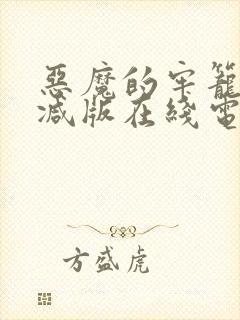 惡魔的牢籠
减版在綫電
方盛虎